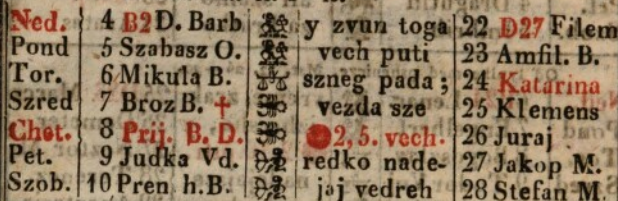 Ned. 4 B2 D. Barb y zvun toga 22 D27 Filem
Pond 5 Szabasz O. vech puti 23 Amfil. B.
Tor. 6 Mikula B. szneg pada; 24 Katarina
Szred 7 Broz B. † vezda sze 25 Klemens
Chet. 8 Prij. B. D. 2, 5. vech. 26 Juraj
Pet. 9 Judka Vd. redko nade- 27 Jakop M.
Szob. 10 Pren h. B. jaj vedreh 28 Stefan M.